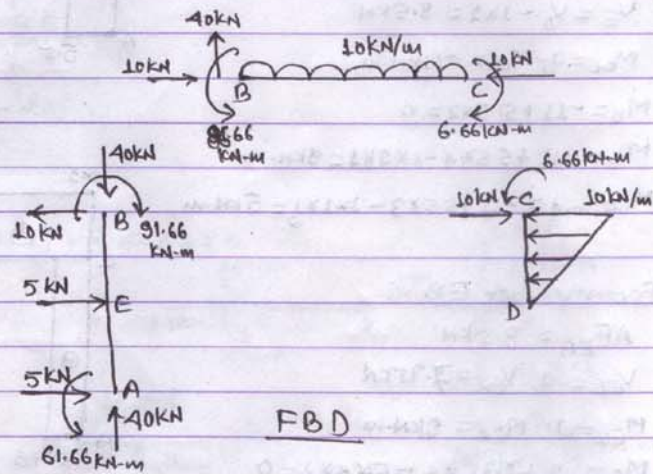 40KN
10KN/m
10KN
10KN
B
C
KN-m
6.66KN-m
40KN
6.66KN-m
10KN
B
91.66
KN-m
10KN
C
10KN/m
5KN
E
D
5KN
A
40KN
61.66KN-m
FBD